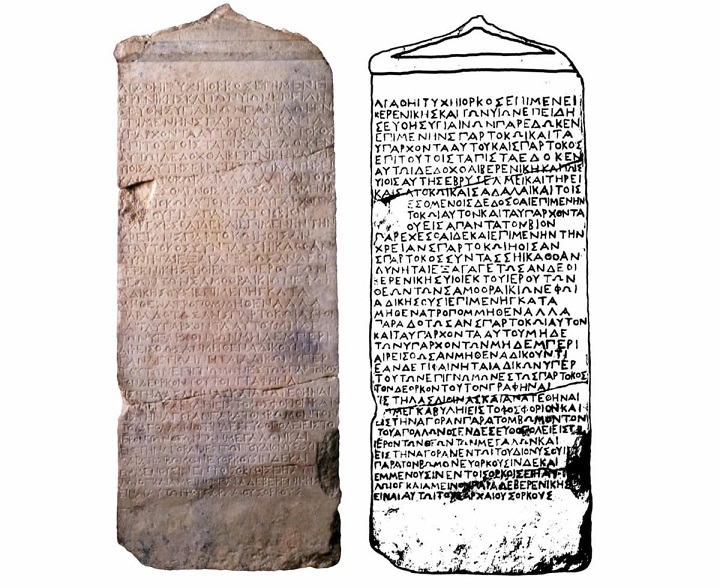 ΑΓΑΘΗΙΤΥΧΗΙΟΡΚΟΣΕΠΙΜΕΝΕΙ
ΚΕΡΕΝΙΚΗΣΚΑΙΤΩΝΥΙΩΝΕΠΕΙΔΗ
ΣΕΥΘΗΣΥΓΙΑΙΝΩΝΠΑΡΕΔΩΚΕΝ
ΕΠΙΜΕΝΗΝΣΠΑΡΤΟΚΩΙΚΑΙΤΑ
ΥΠΑΡΧΟΝΤΑΑΥΤΟΥΚΑΙΣΠΑΡΤΟΚΟΣ
ΕΠΙΤΟΥΤΟΙΣΤΑΠΙΣΤΑΕΔΟΚΕΝ
ΑΥΤΩΙΔΕΔΟΧΘΑΙΒΕΡΕΝΙΚΗΙΚΑΙΤΟΙΣ
ΥΙΟΙΣΑΥΤΗΣΕΒΡΥΖΕΛΜΕΙΚΑΙΤΗΡΕΙ
ΚΑΙΣΑΤΟΚΩΙΚΑΙΣΑΔΑΛΑΙΚΑΙΤΟΙΣ
ΕΣΟΜΕΝΟΙΣΔΕΔΟΣΘΑΙΕΠΙΜΕΝΗΝ
ΤΟΚΩΙΑΥΤΟΝΚΑΙΤΑΥΠΑΡΧΟΝΤΑ
ΟΥΕΙΣΑΠΑΝΤΑΤΟΝΒΙΟΝ
ΠΑΡΕΧΕΣΘΑΙΔΕΚΑΙΕΠΙΜΕΝΗΝΤΗΝ
ΧΡΕΙΑΝΣΠΑΡΤΟΚΩΙΗΟΙΣΑΝ
ΣΠΑΡΤΟΚΟΣΣΥΝΤΑΣΣΗΙΚΑΘΟΑΝ
ΔΥΝΗΤΑΙΕΞΑΓΑΓΕΤΩΣΑΝΔΕΟΙ
ΒΕΡΕΝΙΚΗΣΥΙΟΙΕΚΤΟΥΙΕΡΟΥΤΩΝ
ΘΕΩΝΤΩΝΣΑΜΟΘΡΑΙΚΙΩΝΕΦΩΙ
ΑΔΙΚΗΣΟΥΣΙΕΠΙΜΕΝΗΓΚΑΤΑ
ΜΗΘΕΝΑΤΡΟΠΟΜΜΗΘΕΝΑΛΛΑ
ΠΑΡΑΔΟΤΩΣΑΝΣΠΑΡΤΟΚΩΙΑΥΤΟΝ
ΚΑΙΤΑΥΠΑΡΧΟΝΤΑΑΥΤΟΥΜΗΔΕ
ΤΩΝΥΠΑΡΧΟΝΤΩΝΜΗΔΕΜΠΕΡΙ
ΑΙΡΕΙΣΘΩΣΑΝΜΗΘΕΝΑΔΙΚΟΥΝΤΙ
ΕΑΝΔΕΤΙΦΑΙΝΗΤΑΙΑΔΙΚΩΝΥΠΕΡ
ΤΟΥΤΩΝΕΠΙΓΝΩΜΩΝΕΣΤΩΣΠΑΡΤΟΚΟΣ
ΤΟΝΔΕΟΡΚΟΝΤΟΥΤΟΝΓΡΑΦΗΝΑΙ
ΕΙΣΤΗΛΑΣΛΙΘΙΝΑΣΚΑΙΑΝΑΤΕΘΗΝΑΙ
ΜΕΓΚΑΒΥΛΗΙΕΙΣΤΟΦΩΣΦΟΡΙΟΝΚΑΙ
ΕΙΣΤΗΝΑΓΟΡΑΝΠΑΡΑΤΟΜΒΩΜΟΝΤΟΝ
ΤΟΥΑΠΟΛΛΩΝΟΣΕΝΔΕΣΕΥΘΟΠΟΛΕΙΕΙΣΤΟ
ΙΕΡΟΝΤΩΝΘΕΩΝΤΩΝΜΕΓΑΛΩΝΚΑΙ
ΕΙΣΤΗΝΑΓΟΡΑΝΕΝΤΩΙΤΟΥΔΙΟΝΥΣΟΥΙ
ΠΑΡΑΤΟΝΒΩΜΟΝΕΥΟΡΚΟΥΣΙΝΔΕΚΑΙ
ΕΜΜΕΝΟΥΣΙΝΕΝΤΟΙΣΟΡΚΟΙΣΕΙΗΑΥΤ
ΛΩΙΟΓΚΑΙΑΜΕΙΝΟΝΠΑΡΑΔΕΒΕΡΕΝΙΚΗΣ
ΕΙΝΑΙΑΥΤΩΙΤΟΥΣΑΡΧΑΙΟΥΣΟΡΚΟΥΣ